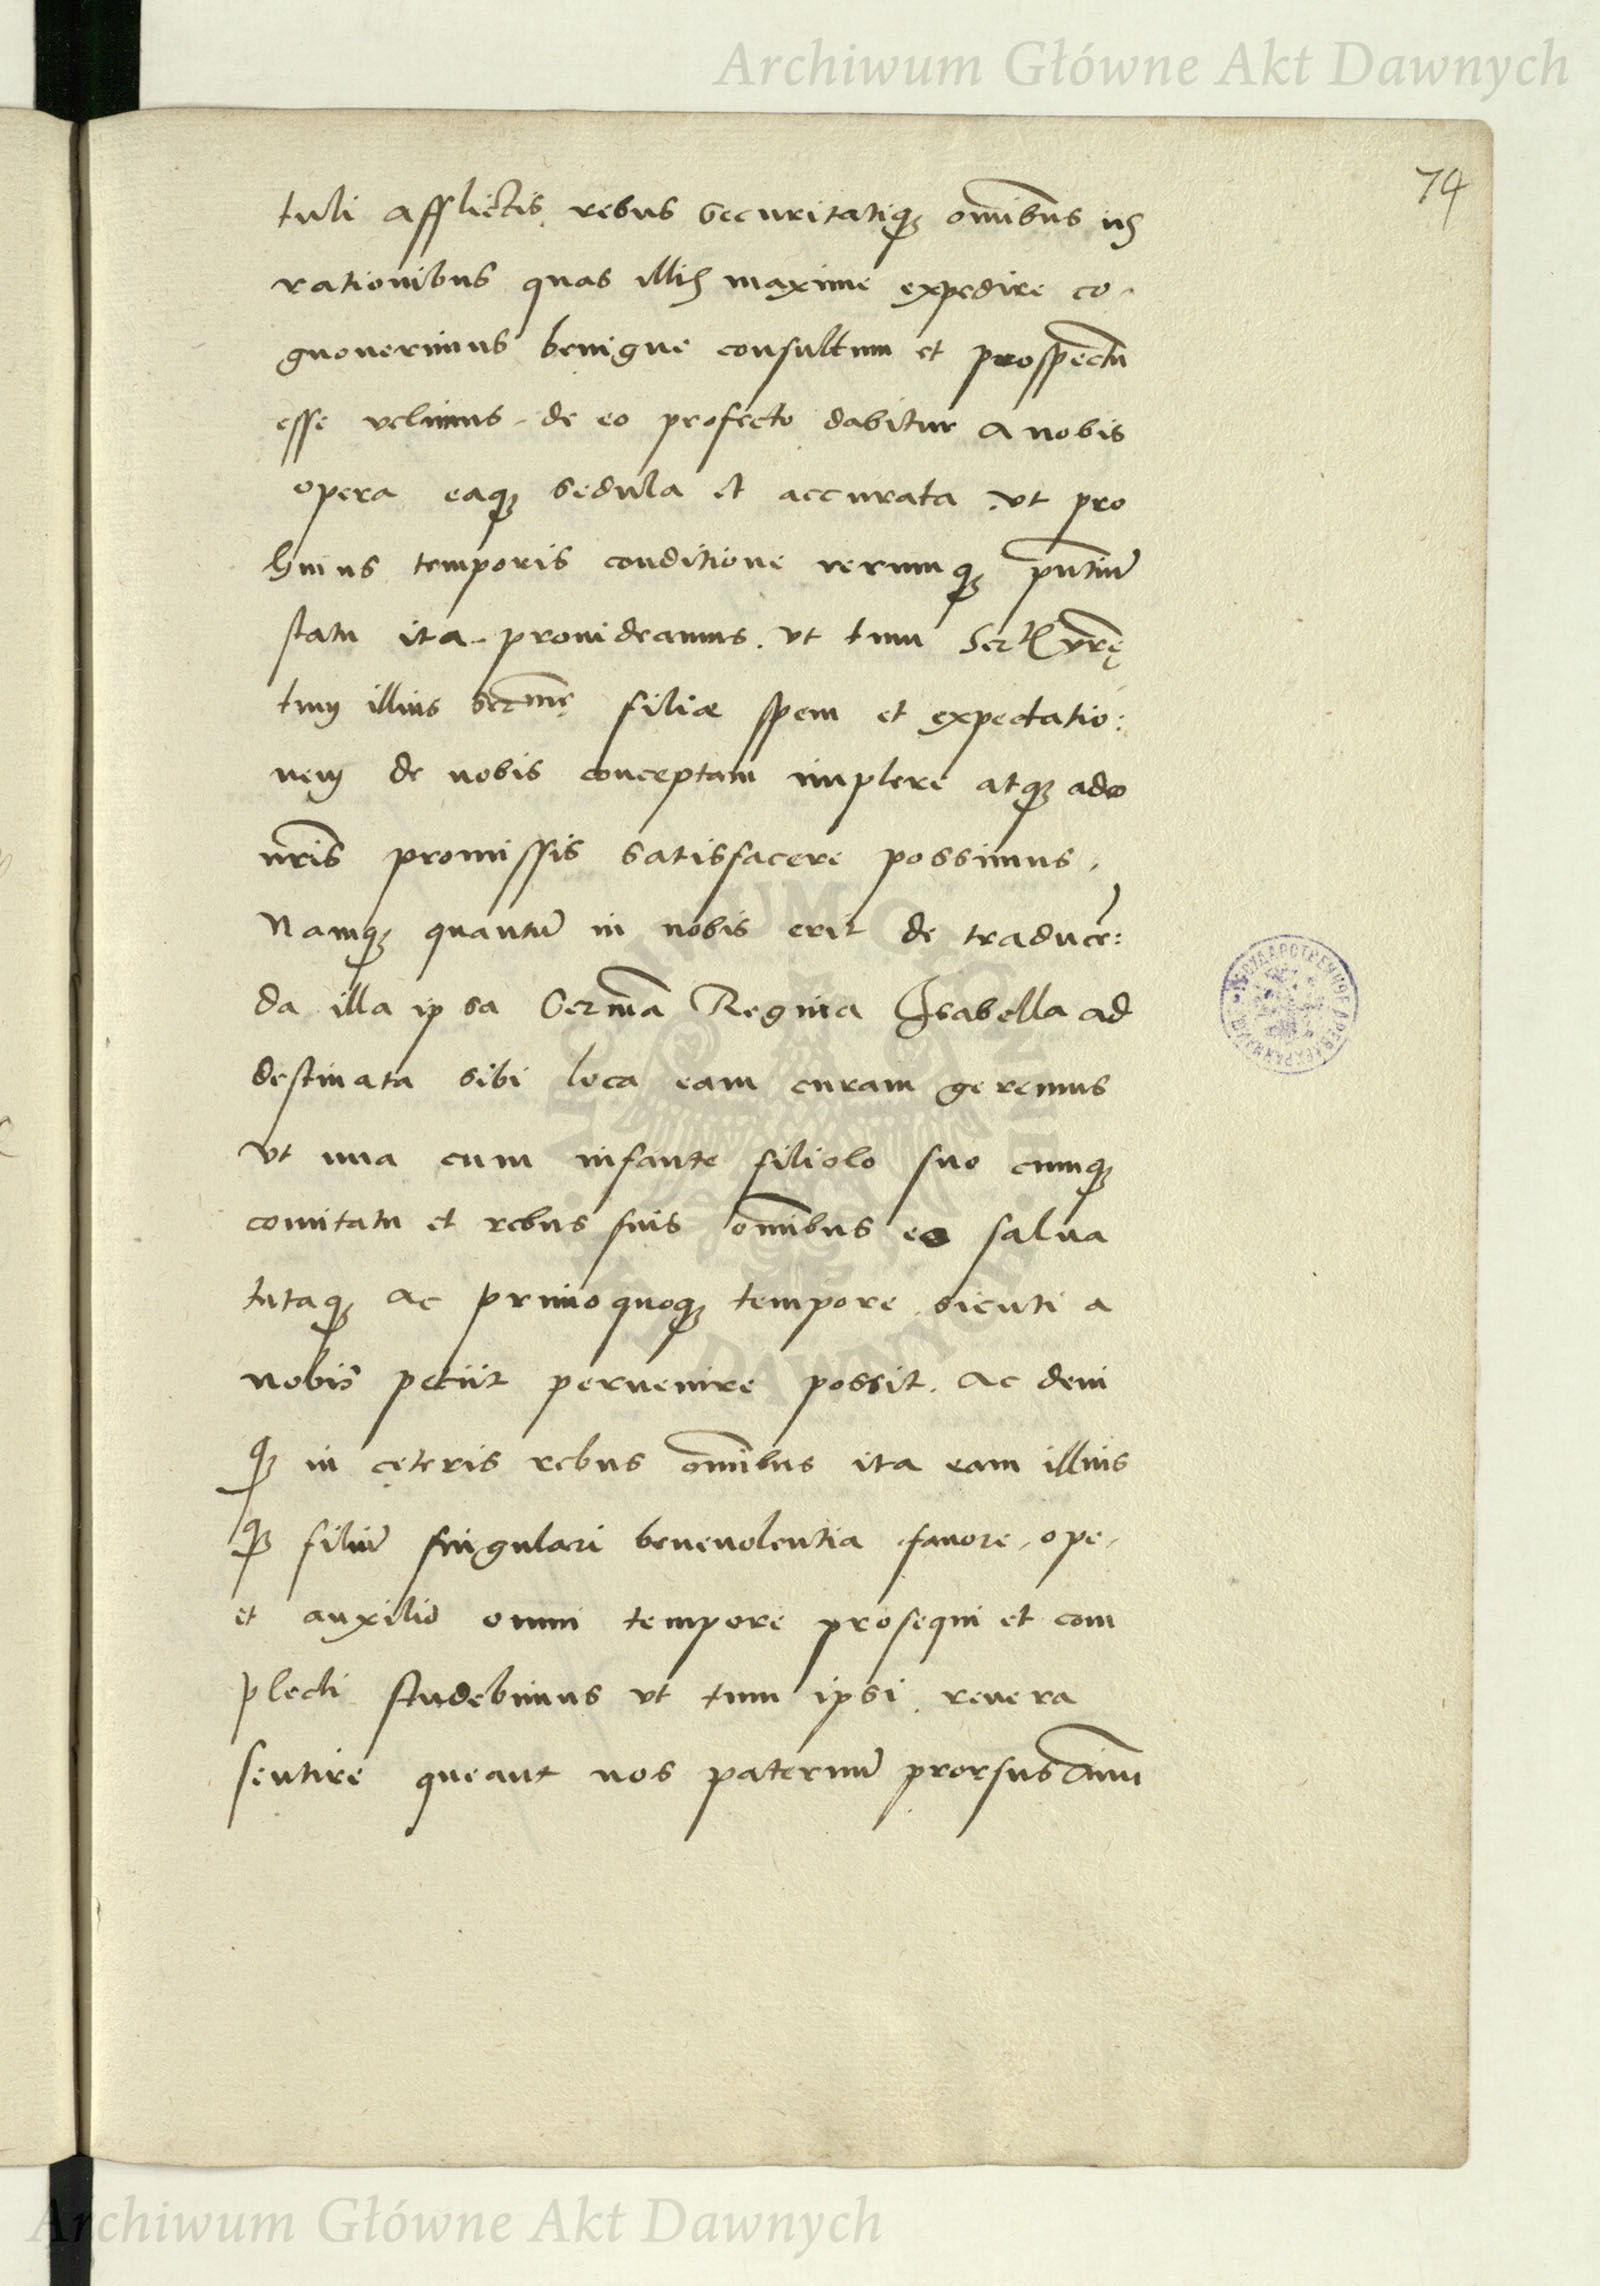 Archiwum Główne Akt Dawnych
74
tuli afflictis rebus securitatiq₃ om̄ibus ijs
rationibus quas illis maxime expedire co-
gnouerimus benigne consultum et prospectū
esse velimus - de eo profecto dabitur a nobis
opera eaq₃ sedula et accurata . vt pro
huius temporis conditione rerumq₃ pn̄tiū
statu ita prouideamus . vt tum Sertis vrę̄
tum illius sermę filiæ spem et expectatio:
nem de nobis conceptam implere atq₃ adeo
nr̄is promissis satisfacere possimus .
Namq₃ quantū in nobis erit de traducē:
da illa ipsa Sermā Regina Isabella ad
destinata sibi loca eam curam geremus
vt una cum infante filiolo suo cumq₃
comitatu et rebus suis om̄ibus eo salua
tutaq₃ ac primo quoq₃ tempore sicuti a
nobis petiit peruenire possit . ac deni
q₃ in cęteris rebus om̄ibus ita eam illius
q₃ filiū singulari beneuolentia fauore , ope ,
et auxilio omni tempore prosequi et com
plecti studebimus vt tum ipsi reuera
sentire queant nos paternū prorsus aīmū
Archiwum Główne Akt Dawnych